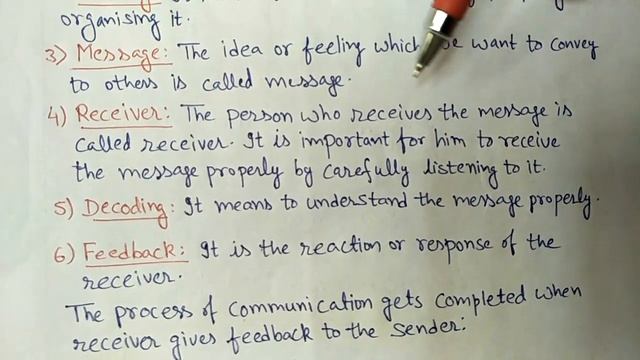 organising it.
3) Message: The idea or feeling which we want to convey
to others is called message.
4) Receiver: The person who receives the message is
called receiver. It is important for him to receive
the message properly by carefully listening to it.
5) Decoding: It means to understand the message properly.
6) Feedback: It is the reaction or response of the
receiver.
The process of communication gets completed when
receiver gives feedback to the sender.